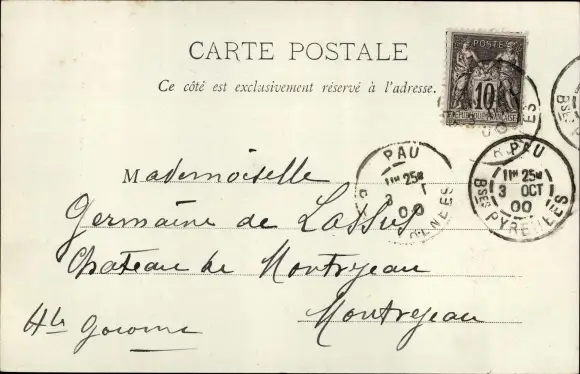 CARTE POSTALE
Ce côté est exclusivement réservé à l'adresse.
POSTES
10
PAU
11H 25M
3 OCT
00
BSES PYRENEES
PAU
11H 25M
3
00
Mademoiselle
Germaine de Lassus
Chateau de Montrejeau
Montrejeau
Hte Garonne